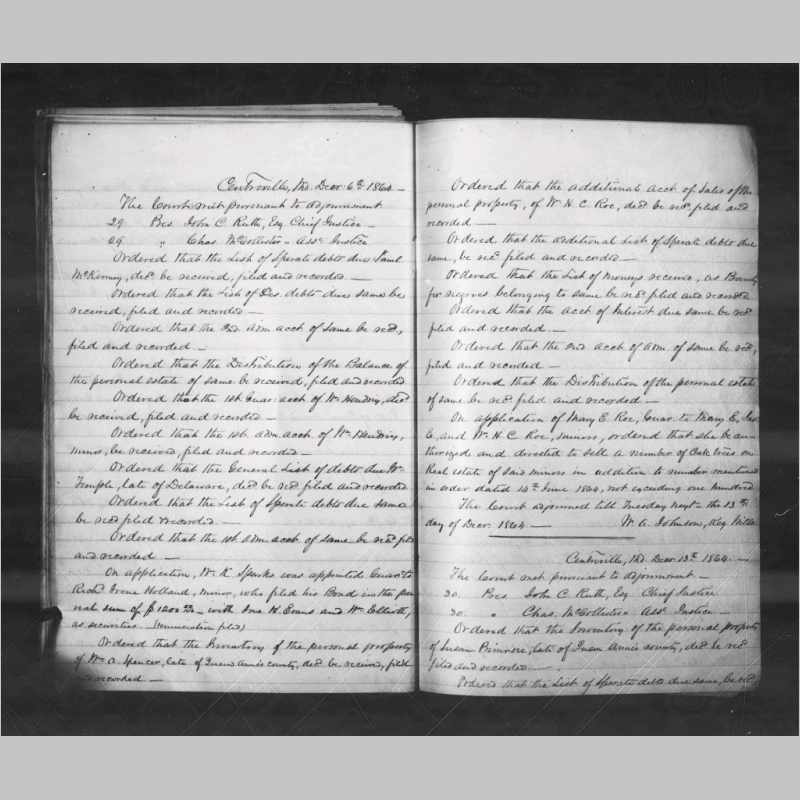 Centreville, Md. Decr 6th 1864 —
The Court met pursuant to adjournment
29 Pres John C. Ruth, Esq Chief Justice —
69 " Chas McCollister — Asst Justice
Ordered that the List of Sperate debts due Saml
McKenney, decd be received, filed and recorded —
Ordered that the List of Des. debts due same be
received, filed and recorded —
Ordered that the 2nd adm acct of same be recd,
filed and recorded —
Ordered that the Distribution of the Balance of
the personal estate of same be received, filed and recorded
Ordered that the 1st Guar. acct of Wm Hendrix, decd
be received, filed and recorded —
Ordered that the 1st adm. acct of Wm Hendrix,
minor, be received, filed and recorded —
Ordered that the General List of debts due Wm
Temple, late of Delaware, decd be recd filed and recorded
Ordered that the List of Sperate debts due same
be recd filed & recorded —
Ordered that the 1st adm acct of same be recd filed
and recorded —
On application, Wm K Sparks was appointed Guarn to
Richd Irene Holland, minor, who filed his Bond in the pe-
nal sum of $1200 — with Jno H. Evans and Wm Elliott,
as securities. (enumeration filed)
Ordered that the Inventory of the personal property
of Wm A. Spencer, late of Queen Anne's county, decd be receivd, filed
and recorded —
Ordered that the additional acct of sales of the
personal property, of W. H. C. Roe, decd be recd filed and
recorded —
Ordered that the additional List of Sperate debts due
same, be recd filed and recorded —
Ordered that the List of Moneys received, as Bounty
for negroes belonging to same be recd filed and recorded
Ordered that the acct of Interest due same be recd
filed and recorded —
Ordered that the 2nd acct of adm. of same be recd,
filed and recorded —
Ordered that the Distribution of the personal estate
of same be recd filed and recorded —
On application of Mary E. Roe, Guar. to Mary E., Jas
E. and Wm H. C. Roe, minors, ordered that she be au-
thorized and directed to sell a number of Oak trees on
Real estate of said minors in addition to number mentioned
in order dated 14th June 1864, not exceeding one hundred
The Court adjourned till Tuesday next — the 13th
day of Decr 1864 — W. A. Johnson, Reg Wills
Centreville, Md. Decr 13th 1864 —
The Court met pursuant to adjournment —
30. Pres John C. Ruth, Esq Chief Justice
70. " Chas. McCollister — Asst Justice —
Ordered that the Inventory of the personal property
of Susan Primrose, late of Queen Anne's county, decd be recd
filed and recorded —
Ordered that the List of Sperate debts due same, be recd